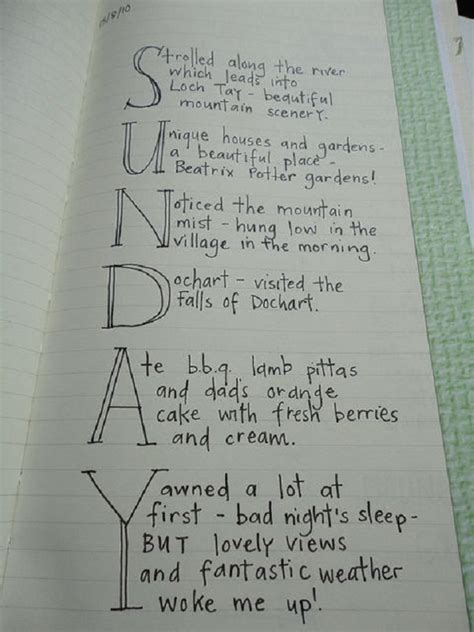 Strolled along the river
which leads into
Loch Tay - beautiful
mountain scenery.
Unique houses and gardens -
a beautiful place -
Beatrix Potter gardens!
Noticed the mountain
mist - hung low in the
village in the morning.
Dochart - visited the
Falls of Dochart.
Ate b.b.q. lamb pittas
and dad's orange
cake with fresh berries
and cream.
Yawned a lot at
first - bad night's sleep -
BUT lovely views
and fantastic weather
woke me up!